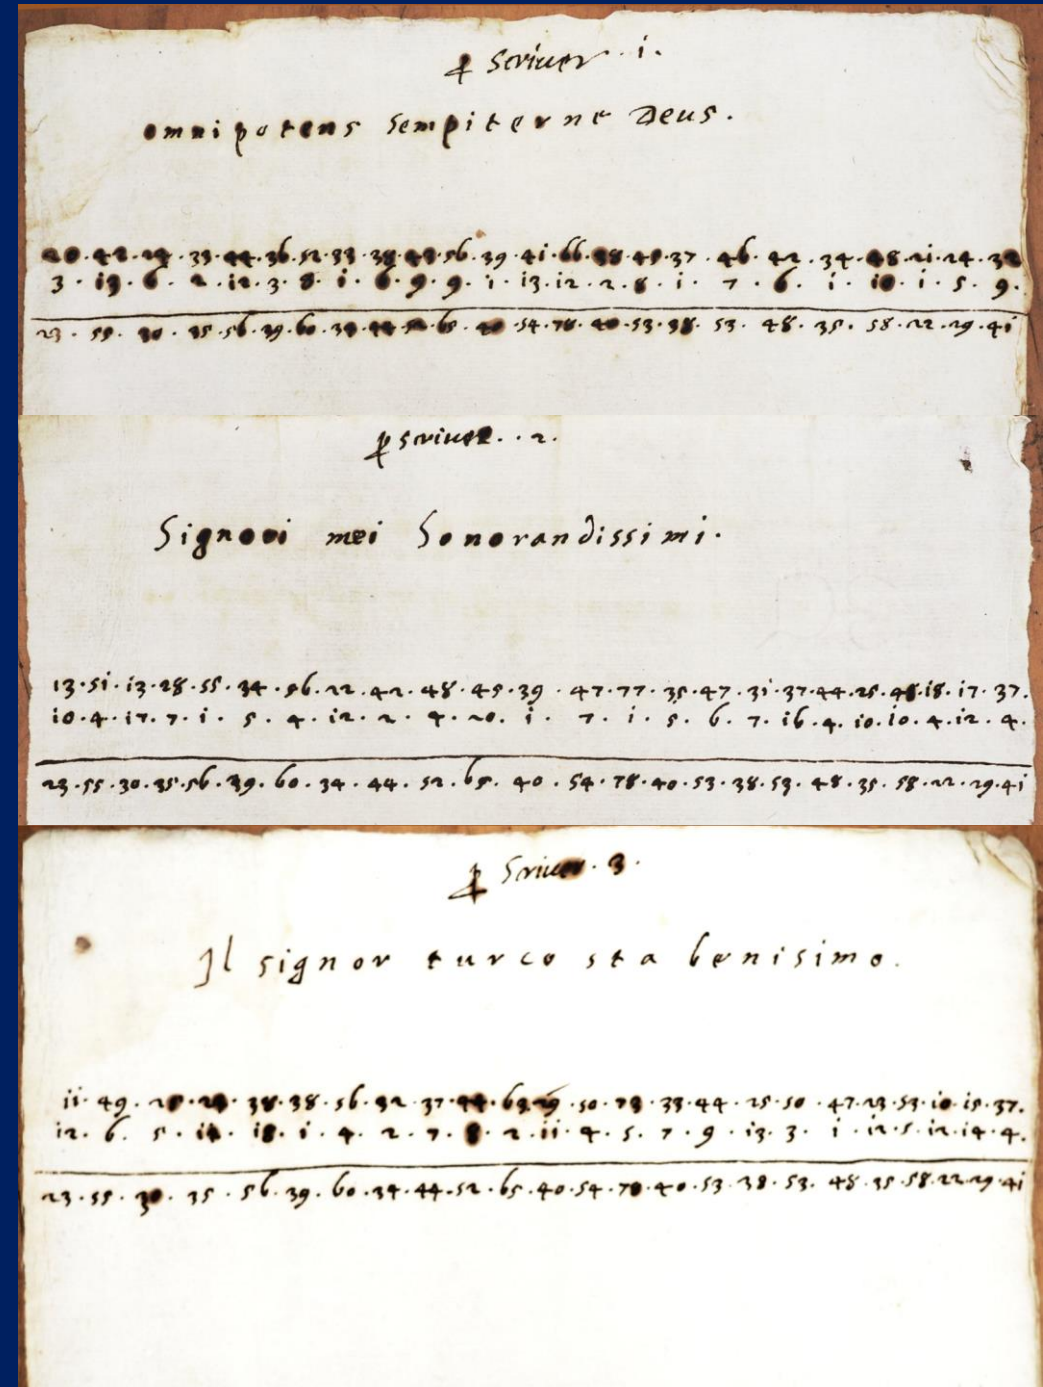 ꝑ Scriuer · 1 ·
omnipotens sempiterne Deus.
20 · 42 · 24 · 33 · 44 · 36 · 52 · 33 · 38 · 43 · 56 · 39 · 41 · 66 · 38 · 45 · 37 · 46 · 42 · 34 · 48 · 21 · 24 · 32
3 · 13 · 6 · 2 · 12 · 3 · 8 · 1 · 6 · 9 · 9 · 1 · 13 · 12 · 2 · 8 · 1 · 7 · 6 · 1 · 10 · 1 · 5 · 9 ·
23 · 55 · 30 · 35 · 56 · 39 · 60 · 34 · 44 · 52 · 65 · 40 · 54 · 78 · 40 · 53 · 38 · 53 · 48 · 35 · 58 · 22 · 29 · 41
ꝑ scriuer · · 2 ·
Signori mei honorandissimi.
13 · 51 · 13 · 28 · 55 · 34 · 56 · 22 · 42 · 48 · 45 · 39 · 47 · 77 · 35 · 47 · 31 · 37 · 44 · 25 · 48 · 18 · 17 · 37 ·
10 · 4 · 17 · 7 · 1 · 5 · 4 · 12 · 2 · 4 · 20 · 1 · 7 · 1 · 5 · 6 · 7 · 16 · 4 · 10 · 10 · 4 · 12 · 4 ·
23 · 55 · 30 · 35 · 56 · 39 · 60 · 34 · 44 · 52 · 65 · 40 · 54 · 78 · 40 · 53 · 38 · 53 · 48 · 35 · 58 · 22 · 29 · 41
ꝑ Scriuer · 3 ·
Il signor turco sta benisimo.
11 · 49 · 25 · 21 · 38 · 38 · 56 · 32 · 37 · 44 · 63 · 29 · 50 · 73 · 33 · 44 · 25 · 50 · 47 · 23 · 53 · 10 · 15 · 37 ·
12 · 6 · 5 · 14 · 18 · 1 · 4 · 2 · 7 · 8 · 2 · 11 · 4 · 5 · 7 · 9 · 13 · 3 · 1 · 12 · 5 · 12 · 14 · 4 ·
23 · 55 · 30 · 35 · 56 · 39 · 60 · 34 · 44 · 52 · 65 · 40 · 54 · 78 · 40 · 53 · 38 · 53 · 48 · 35 · 58 · 22 · 29 · 41